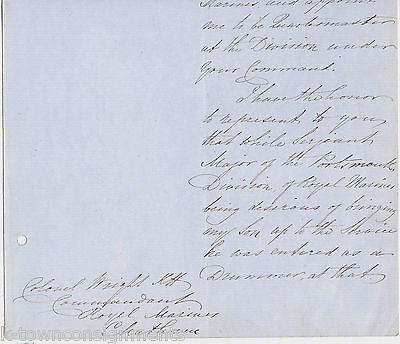 Marines, and appoint
me to be Quartermaster
at the Division under
Your Command.
I have the honor
to represent to you
that while Serjeant
Major of the Portsmouth
Division of Royal Marines
being desirous of bringing
my son up to the Service
he was entered as a
Drummer, at that
Colonel Wright KH
Commandant
Royal Marines
k-townconsignments.com